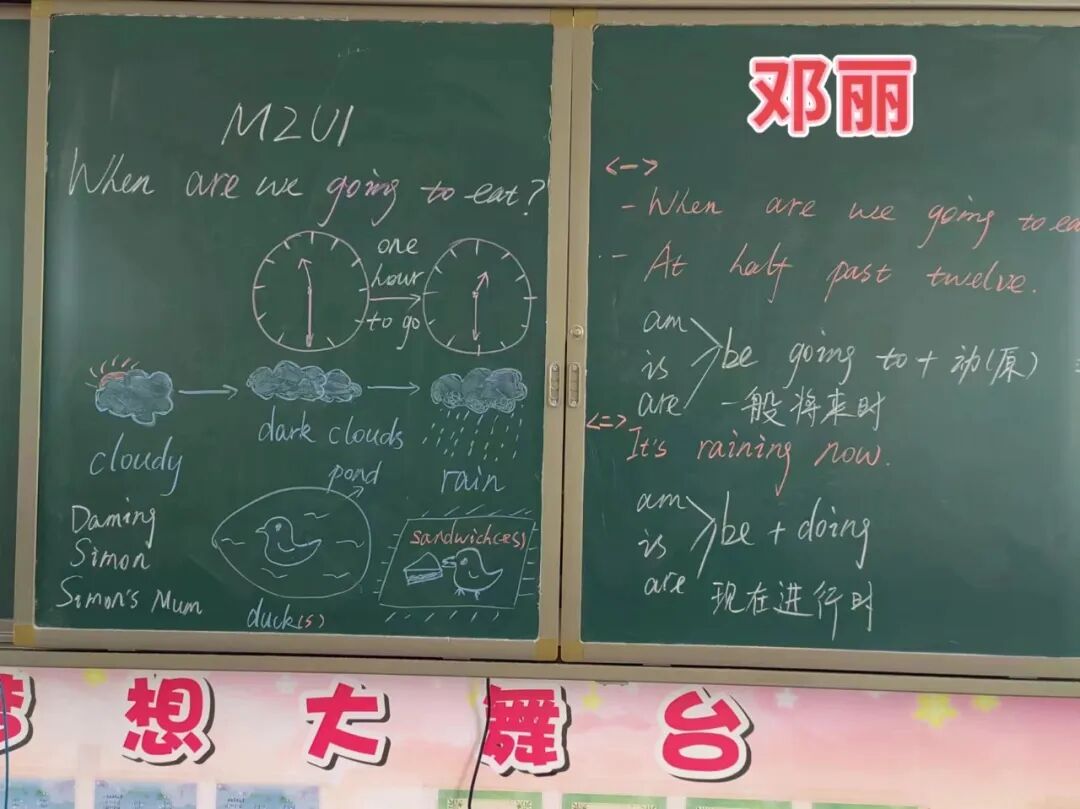 M2U1
When are we going to eat?
one
hour
to go
cloudy
dark clouds
rain
Daming
Simon
Simon's Mum
pond
duck(s)
sandwich(es)
邓丽
<一>
- When are we going to ea
- At half past twelve.
am
is
are
be going to + 动(原)
一般将来时
<二>
It's raining now.
am
is
are
be + doing
现在进行时
梦想大舞台